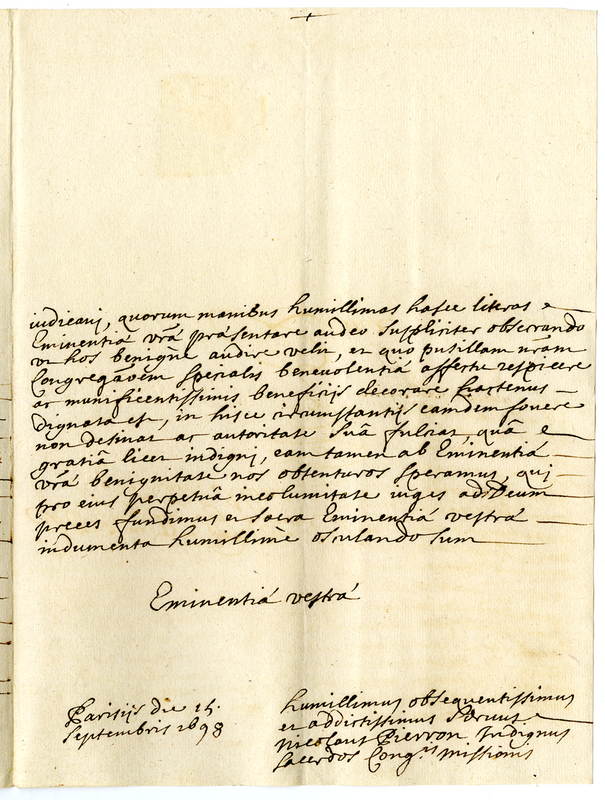 iudicavj, quorum manibus humillimas hasce literas
Eminentiá vrã præsentare audeo suppliciter obserrando
vt hos benigne audire velit, et quo pusillam nram
Congregãoem specialis benevolentiá affectu respicere
ac munificentissimis beneficijs decorare hactenus
Dignata est, in hisce circumstantijs eamdem fovere
non desinat ac autoritate suâ fulciat, quâ
gratiâ licet indignj, eam tamen ab Eminentiâ
vrâ benignitate nos obtenturos speramus, qui
pro eius perpetuâ incolumitate iuges ad Deum
preces fundimus et sacra Eminentiá vestrá
indumenta humillime osculando sum
Eminentiá vestrá
Parisijs die 15.
Septembris 1698
humillimus obsequentissimus
et addictissimus servus
Nicolaus Pierron Indignus
sacerdos Cong.nis missionis